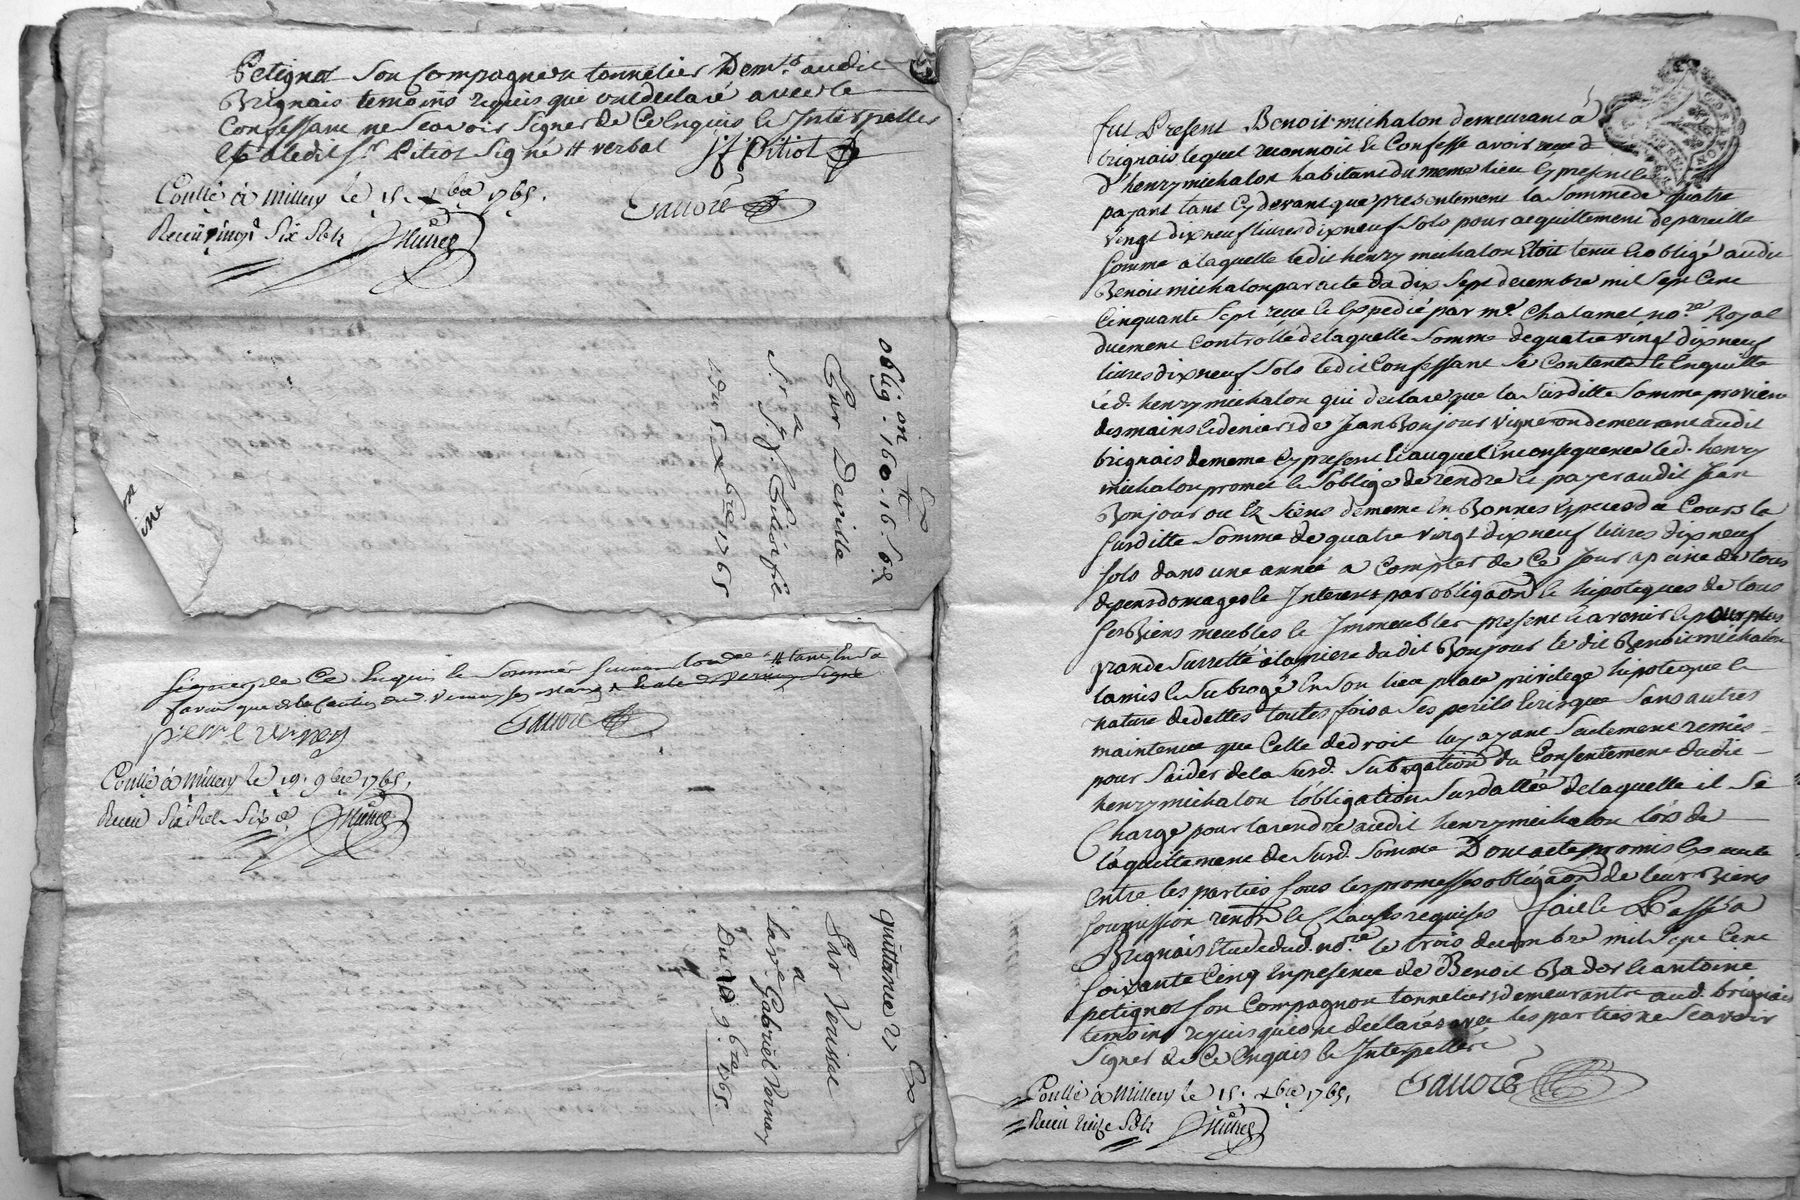 Petignot Son Compagnon tonnelier Demts. audit
Brignais temoins requis qui ont declaré avec le
Confessant ne Scavoir Signer de Ce Enquis & Interpellés
et a ledit Sr. Pitiot Signé # verbal
J f Pitiot
Gavore
Conllé à Millery le 15. xbre 1765.
Receu vingt Six Sols
obligon. 160.tt 16.s 6d.
Exp
Sur Daville
a
Sr. J. f. Pitiot fils
Du 5 xbre 1765
signer de Ce Enquis & Sommés
pierre
Gavore
Conllé à Millery le 19. 9bre 1765.
Receu Six Sols Six d.
quittance 27
Exp
Sur
a
la ve Gabriel Vernay
Du 9bre 1765
fut Present Benoit michalon demeurant à
brignais lequel reconnoit & Confesse avoir receu d
d'henry michalon habitant du meme lieu Cy present &
payant tant Cy devant que presentement la Somme de quatre
vingt dix neuf livres dix neuf Sols pour acquittement de pareille
Somme a laquelle ledit henry michalon Etoit tenu & obligé audit
Benoit michalon par acte du dix Sept decembre mil Sept Cent
Cinquante Sept receu & Expedié par me. Chalamel nore. Royal
duement Controllé de laquelle Somme de quatre vingt dix neuf
livres dix neuf Sols ledit Confessant Se Contente & En quitte
led. henry michalon qui declare que la Susditte Somme provient
des mains & deniers de Jean Bonjour vigneron demeurant audit
brignais de meme Cy present & auquel En consequence led. henry
michalon promet & S'oblige de rendre & payer audit Jean
Bonjour ou Ez Siens de meme En Bonnes Especes du Cours la
Susditte Somme de quatre vingt dix neuf livres dix neuf
Sols dans une année a Compter de Ce Jour a peine de tous
depens domages & Interests par obligaon & hipoteques de tous
Ses Biens meubles & Immeubles present & avenir & pour plus
grande Surretté a la priere dudit Bonjour le dit Benoit michalon
la mis & Subrogé En Son lieu place privilege hipoteque &
nature de dettes toutes fois a Ses perils & risque Sans autres
maintenue que Celle de droit luy ayant Seulement remis
pour S'aider de la Susd. Subrogation du Consentement dudit
henry michalon l'obligation Susdattée de laquelle il Se
Charge pour la rendre audit henry michalon lors de
l'aquittement de Susd. Somme Dont acte promis Exp
Entre les parties Sous les promesses obligaon de leurs Biens
Soumission renon & Clauses requises fait & Passé a
Brignais Etude dud. nore. le trois decembre mil Sept Cent
Soixante Cinq En presence de Benoit Bador & antoine
petignot Son Compagnon tonneliers demeurants aud. brignais
temoins requis qui ont déclaré avec les parties ne Scavoir
Signer de Ce Enquis & Interpellés
Gavore
Conllé à Millery le 15. xbre 1765.
Receu treize Sols